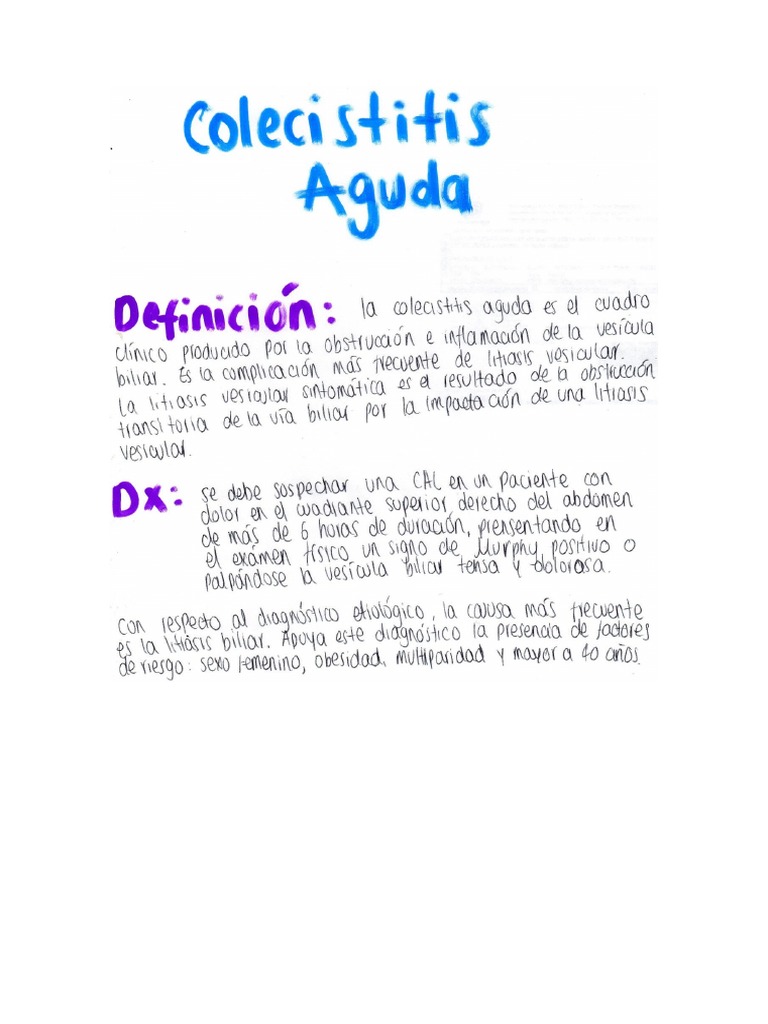 Colecistitis
Aguda
Definición: la colecistitis aguda es el cuadro
clínico producido por la obstrucción e inflamación de la vesícula
biliar. Es la complicación más frecuente de litiasis vesicular.
La litiasis vesicular sintomática es el resultado de la obstrucción
transitoria de la vía biliar por la impactación de una litiasis
vesicular.
Dx: se debe sospechar una CAL en un paciente con
dolor en el cuadrante superior derecho del abdomen
de más de 6 horas de duración, prensentando en
el exámen físico un signo de Murphy positivo o
palpándose la vesícula biliar tensa y dolorosa.
Con respecto al diagnóstico etiológico, la causa más frecuente
es la litiasis biliar. Apoya este diagnóstico la presencia de factores
de riesgo: sexo femenino, obesidad, multiparidad y mayor a 40 años.